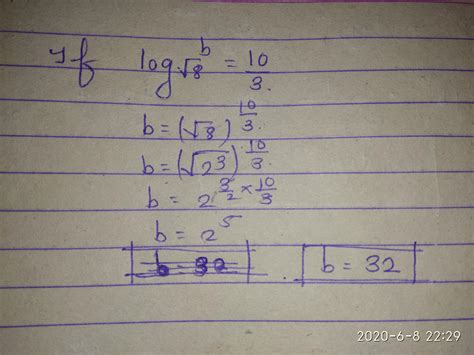 If log√8 b = 10/3.
b = (√8)^10/3.
b = (√2^3)^10/3.
b = 2^3/2 × 10/3
b = 2^5
b = 32 b = 32
2020-6-8 22:29